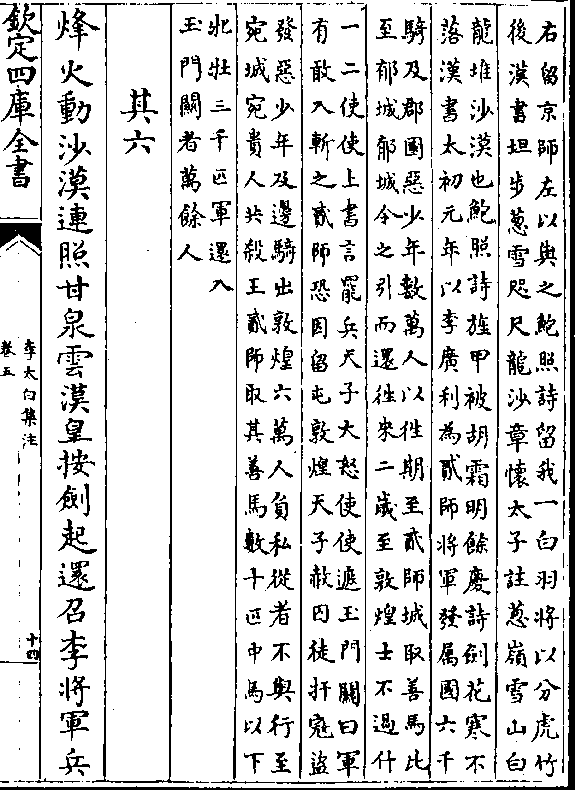 右留京師左以與之鮑照詩留我一白羽將以分虎竹
後漢書坦步葱雪咫尺龍沙章懷太子註葱嶺雪山白
龍堆沙漠也鮑照詩旌甲被胡霜明餘慶詩劍花寒不
落漢書太初元年以李廣利為貳師將軍發属國六千
騎及郡國惡少年數萬人以徃期至貳師城取善馬比
至郁城郁城令之引而還徃來二歲至敦煌士不過什
一二使使上書言罷兵天子大怒使使遮玉門關曰軍
有敢入斬之貳師恐因留屯敦煌天子赦囚徒扞寇盜
發惡少年及邊騎出敦煌六萬人負私從者不與行至
宛城宛貴人共殺王貳師取其善馬數十匹中馬以下
牝牡三千匹軍還入
玉門關者萬餘人
其六
烽火動沙漠連照甘泉雲漠皇按劍起還召李將軍兵
欽定四庫全書
李太白集注
卷五
十四